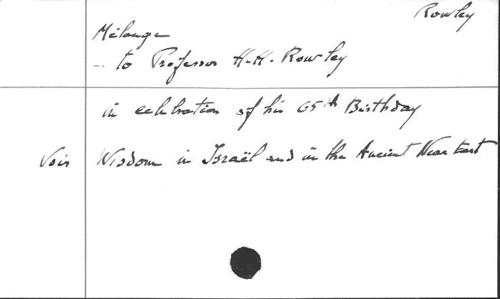 Rowley
Mélange
... to Professor H.H. Rowley
in celebration of his 65th Birthday
Voir Wisdom in Israël and in the Ancient Near East